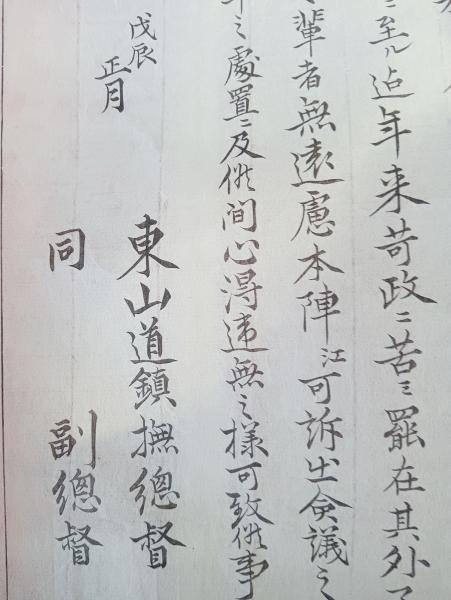 ニ至ル迠年来苛政ニ苦ミ罷在其外
輩者無遠慮本陣江可訴出僉議之
之處置ニ及候間心得違無之様可致候事
戊辰
正月
東山道鎮撫總督
同 副總督